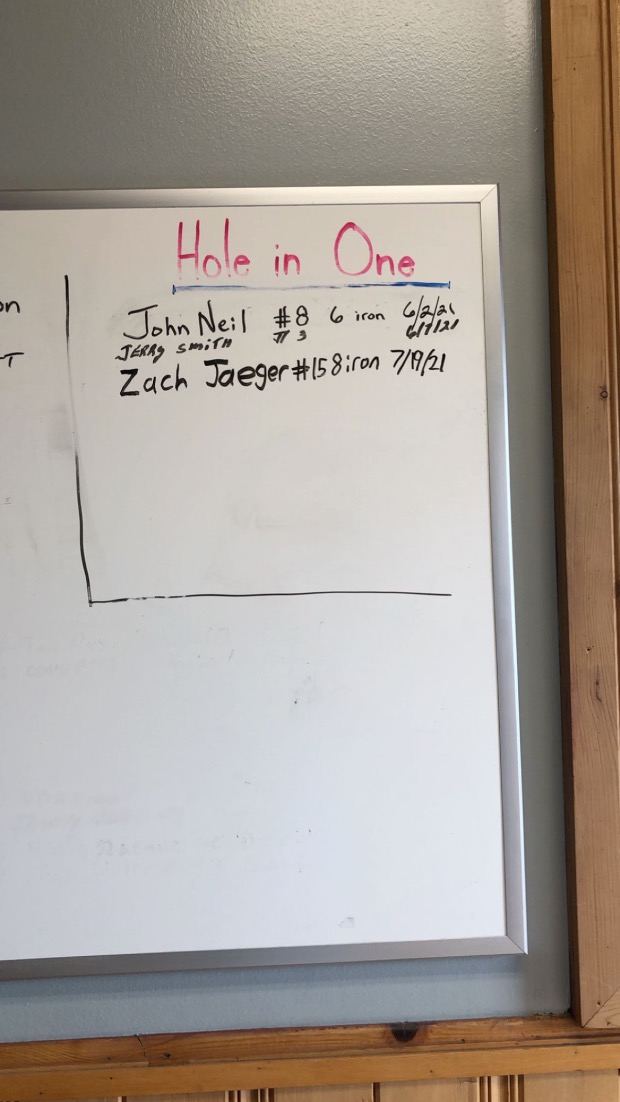 Hole in One
on
John Neil #8 6 iron 6/2/21
JERRY SMITH # 3 6/17/21
T
Zach Jaeger #15 8 iron 7/19/21